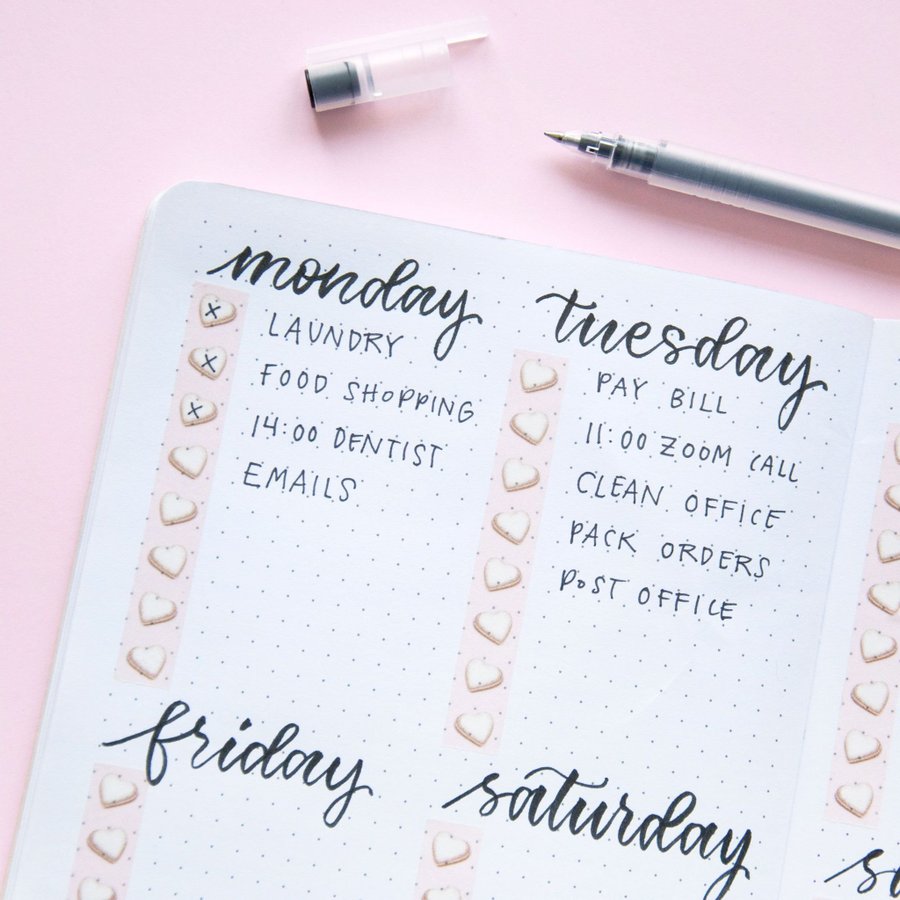 monday
LAUNDRY
FOOD SHOPPING
14:00 DENTIST
EMAILS
tuesday
PAY BILL
11:00 ZOOM CALL
CLEAN OFFICE
PACK ORDERS
POST OFFICE
friday
saturday